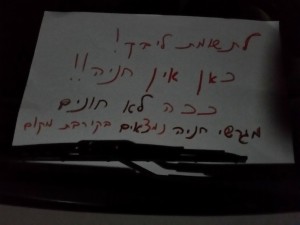 לתשומת ליבך!
כאן אין חניה!!
ככה לא חונים
מגרשי חניה נמצאים בקירבת מקום